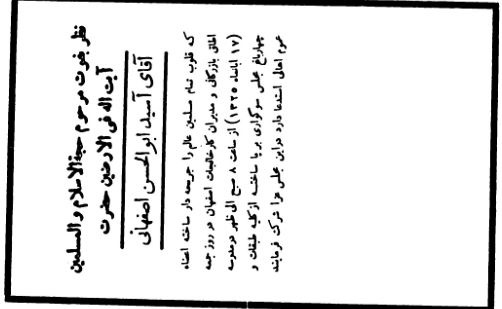 نظر بفوت مرحوم حجة الاسلام و المسلمین
آیت اله فی الارضین حضرت
آقای آسید ابوالحسن اصفهانی
که قلوب تمام مسلمین عالم را جریحه دار ساخته اعضاء
اطاق بازرگانی و مدیران کارخانجات اصفهان در روز جمعه
(۱۷ آبانماه ۱۳۲۵) از ساعت ۸ صبح الی ظهر در مدرسه
چهارباغ مجلس سوگواری برپا ساخته از کلیه طبقات و
عموم اهالی استدعا دارد در این مجلس عزا شرکت فرمایند